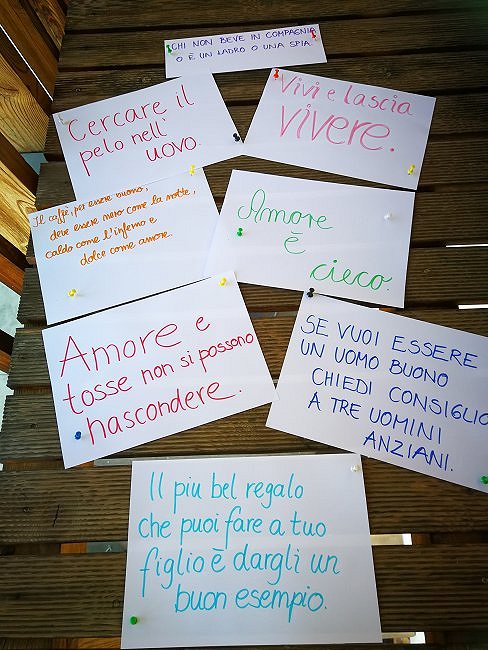 CHI NON BEVE IN COMPAGNIA
O È UN LADRO O UNA SPIA.
Cercare il
pelo nell'
uovo.
Vivi e lascia
vivere.
Il caffè, per essere buono,
deve essere nero come la notte,
caldo come l'inferno e
dolce come amore.
Amore
è
cieco.
Amore e
tosse non si possono
nascondere.
SE VUOI ESSERE
UN UOMO BUONO
CHIEDI CONSIGLIO
A TRE UOMINI
ANZIANI.
Il più bel regalo
che puoi fare a tuo
figlio è dargli un
buon esempio.